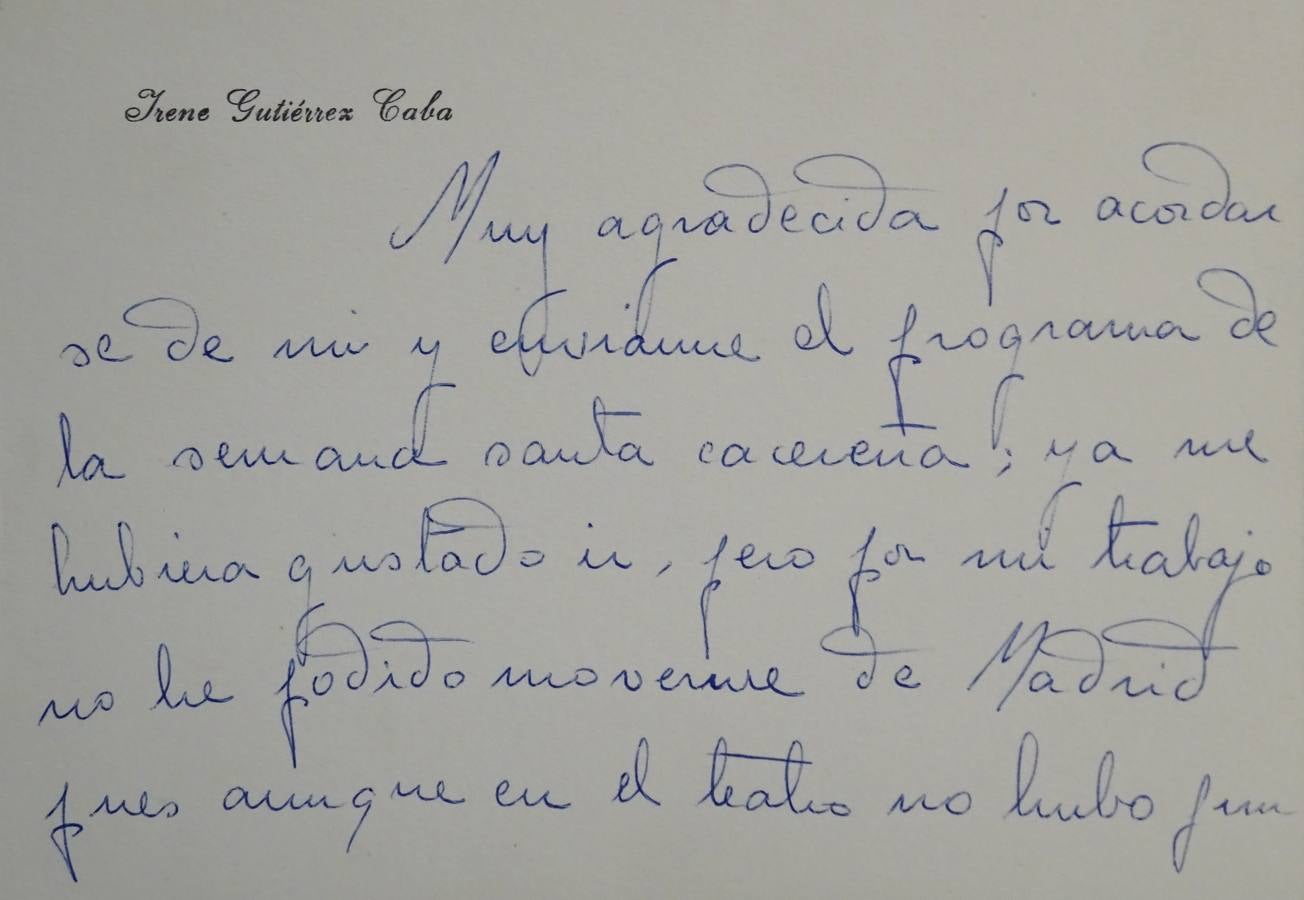 Irene Gutiérrez Caba
Muy agradecida por acordar
se de mi y enviarme el programa de
la semana santa cacereña; ya me
hubiera gustado ir, pero por mi trabajo
no he podido moverme de Madrid
pues aunque en el teatro no hubo fun